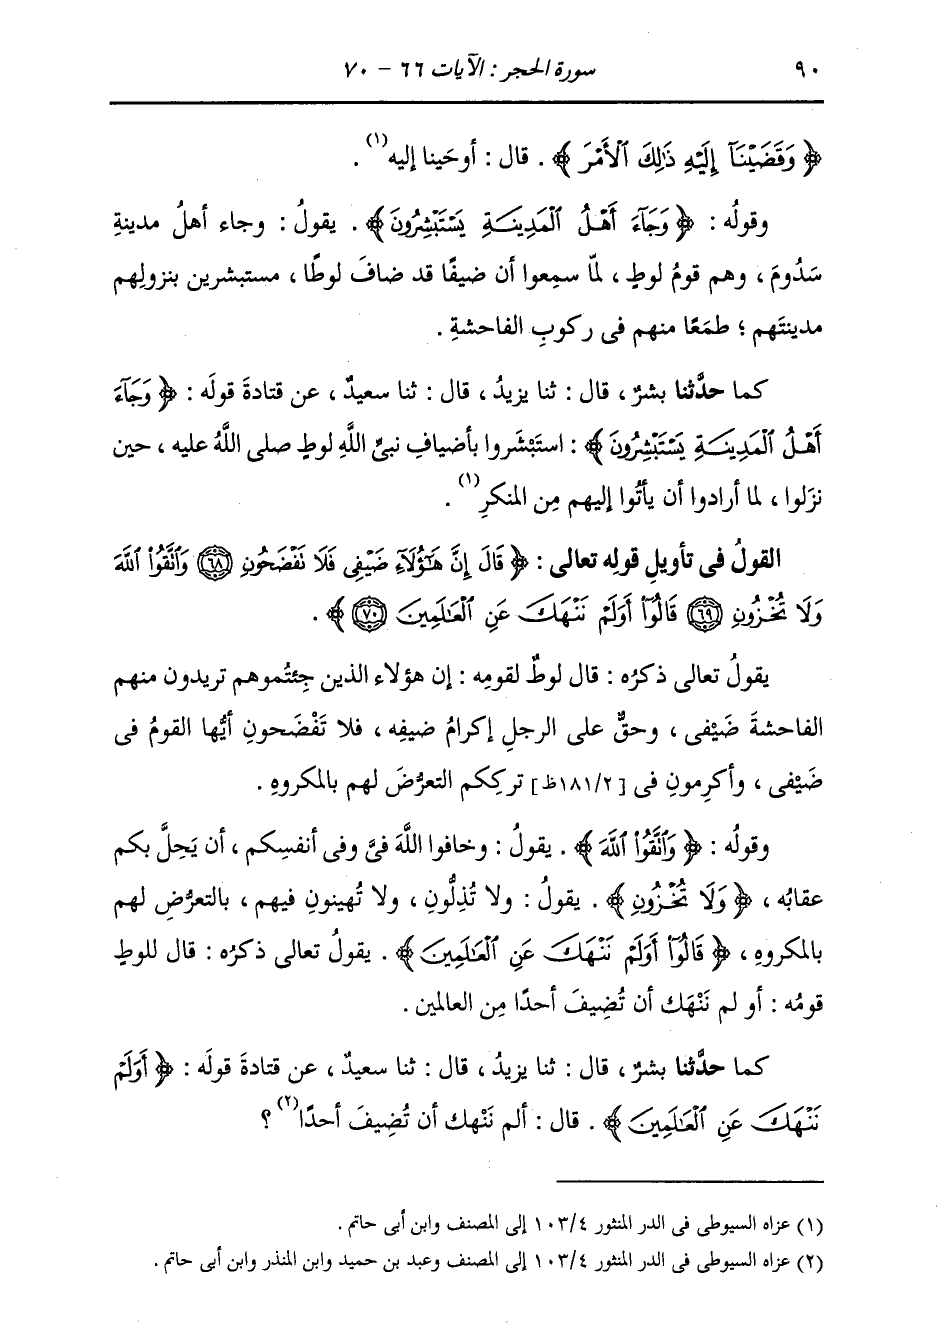 ٩٠ سورة الحجر : الآيات ٦٦ - ٧٠
﴿ وَقَضَيْنَآ إِلَيْهِ ذَٰلِكَ ٱلْأَمْرَ ﴾ . قال : أوحَينا إليه(١) .
وقولُه : ﴿ وَجَآءَ أَهْلُ ٱلْمَدِينَةِ يَسْتَبْشِرُونَ ﴾ . يقولُ : وجاء أهلُ مدينةِ
سَدُومَ ، وهم قومُ لوطٍ ، لمّا سمِعوا أن ضيفًا قد ضافَ لوطًا ، مستبشرين بنزولِهم
مدينتَهم ؛ طمَعًا منهم فى ركوبِ الفاحشةِ .
كما حدَّثنا بشرٌ ، قال : ثنا يزيدُ ، قال : ثنا سعيدٌ ، عن قتادةَ قولَه : ﴿ وَجَآءَ
أَهْلُ ٱلْمَدِينَةِ يَسْتَبْشِرُونَ ﴾ : استَبْشَروا بأضيافِ نبىِّ اللَّهِ لوطٍ صلى اللَّهُ عليه ، حين
نزَلوا ، لما أرادوا أن يأتُوا إليهم مِن المنكرِ(١) .
القولُ فى تأويلِ قولِه تعالى : ﴿ قَالَ إِنَّ هَٰٓؤُلَآءِ ضَيْفِى فَلَا نَفْضَحُونِ ٦٨ وَٱنَّقُوا۟ ٱللَّهَ
وَلَا تُخْزُونِ ٦٩ قَالُوٓا۟ أَوَلَمْ نَنْهَكَ عَنِ ٱلْعَٰلَمِينَ ٧٠ ﴾ .
يقولُ تعالى ذكرُه : قال لوطٌ لقومِه : إن هؤلاء الذين جِئتُموهم تريدون منهم
الفاحشةَ ضَيْفى ، وحقٌّ على الرجلِ إكرامُ ضيفِه ، فلا تَفْضَحونِ أيُّها القومُ فى
ضَيْفى ، وأكرِمونِ فى [١٨١/٢ظ] تركِكم التعرُّضَ لهم بالمكروهِ .
وقولُه : ﴿ وَٱنَّقُوا۟ ٱللَّهَ ﴾ . يقولُ : وخافوا اللَّهَ فىَّ وفى أنفسِكم ، أن يَحِلَّ بكم
عقابُه ، ﴿ وَلَا تُخْزُونِ ﴾ . يقولُ : ولا تُذِلُّونِ ، ولا تُهينونِ فيهم ، بالتعرُّضِ لهم
بالمكروهِ ، ﴿ قَالُوٓا۟ أَوَلَمْ نَنْهَكَ عَنِ ٱلْعَٰلَمِينَ ﴾ . يقولُ تعالى ذكرُه : قال للوطٍ
قومُه : أو لم نَنْهَك أن تُضِيفَ أحدًا مِن العالمين .
كما حدَّثنا بشرٌ ، قال : ثنا يزيدُ ، قال : ثنا سعيدٌ ، عن قتادةَ قولَه : ﴿ أَوَلَمْ
نَنْهَكَ عَنِ ٱلْعَٰلَمِينَ ﴾ . قال : ألم نَنْهك أن تُضِيفَ أحدًا(٢) ؟
(١) عزاه السيوطى فى الدر المنثور ١٠٣/٤ إلى المصنف وابن أبى حاتم .
(٢) عزاه السيوطى فى الدر المنثور ١٠٣/٤ إلى المصنف وعبد بن حميد وابن المنذر وابن أبى حاتم .